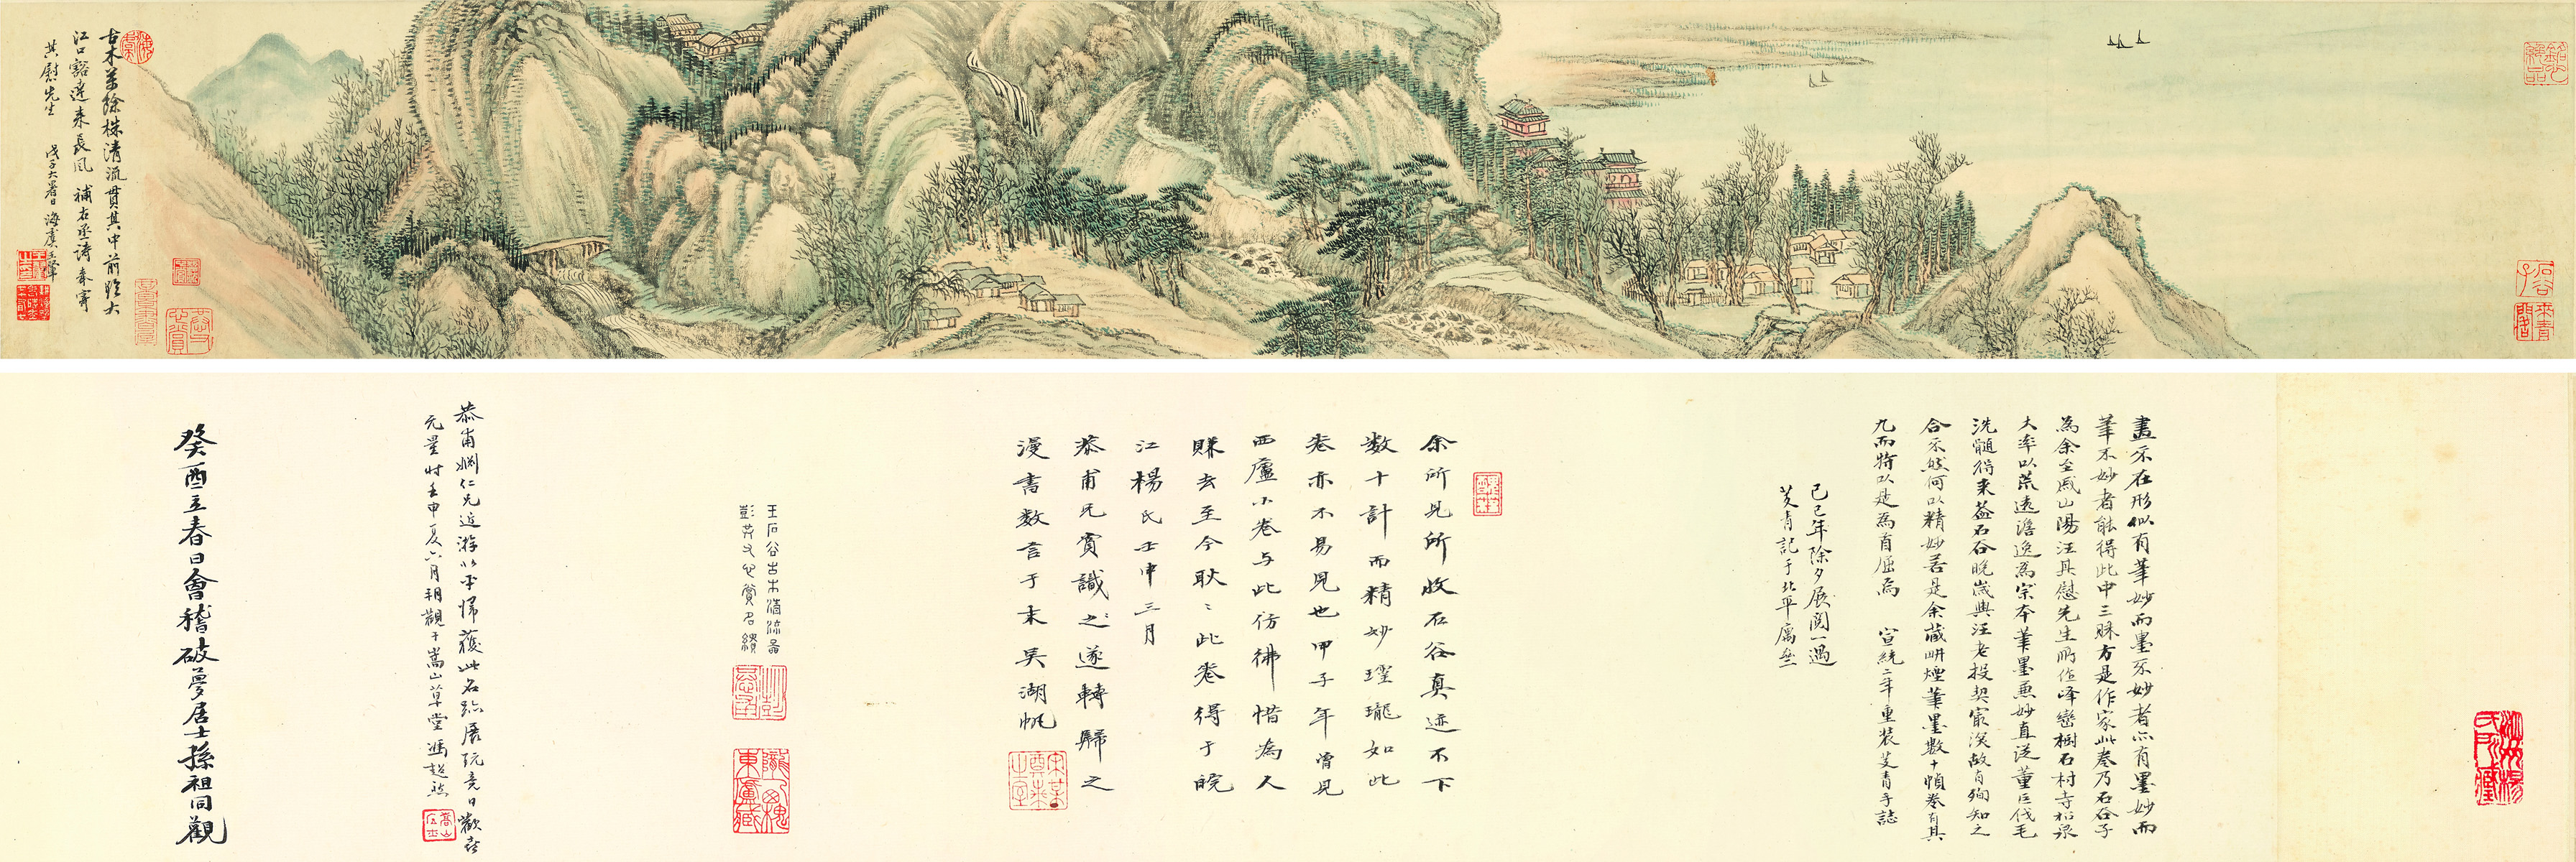 古木萬餘株清流貫其中前臨大
江口豁達來長風 補右丞詩奉寄
其慰先生 戊子大暑日海虞王翬
畫不在形似有筆妙而墨不妙者亦有墨妙而
筆不妙者能得此中三昧方是作家此卷乃石谷子
為余至戚山陽汪其慰先生所作峰巒樹石村寺松泉
大率以荒遠澹逸為宗本筆墨兼妙直從董巨伐毛
洗髓得來蓋石谷晚歲與汪老投契最深故肯殉知之
合不然何以精妙若是余藏畊煙筆墨數十幀卷有其
九而特以是為首屈焉 宣統二年重裝艾青手誌
己巳年除夕展閱一過
艾青記于北平寓齋
余所見所收石谷真迹不下
數十計而精妙瓏如此
卷亦不易見也甲子年曾見
西廬小卷與此彷彿惜為人
賺去至今耿〻此卷得于皖
江楊氏壬申三月
恭甫兄賞識之遂轉歸之
漫書數言于末吳湖帆
王石谷古木清流圖
恭甫仁兄近游北平歸獲此名跡展玩竟日歡喜
元量時壬申夏六月朔觀于嵩山草堂馮超然
癸酉立春日會稽破夢居士孫祖同觀